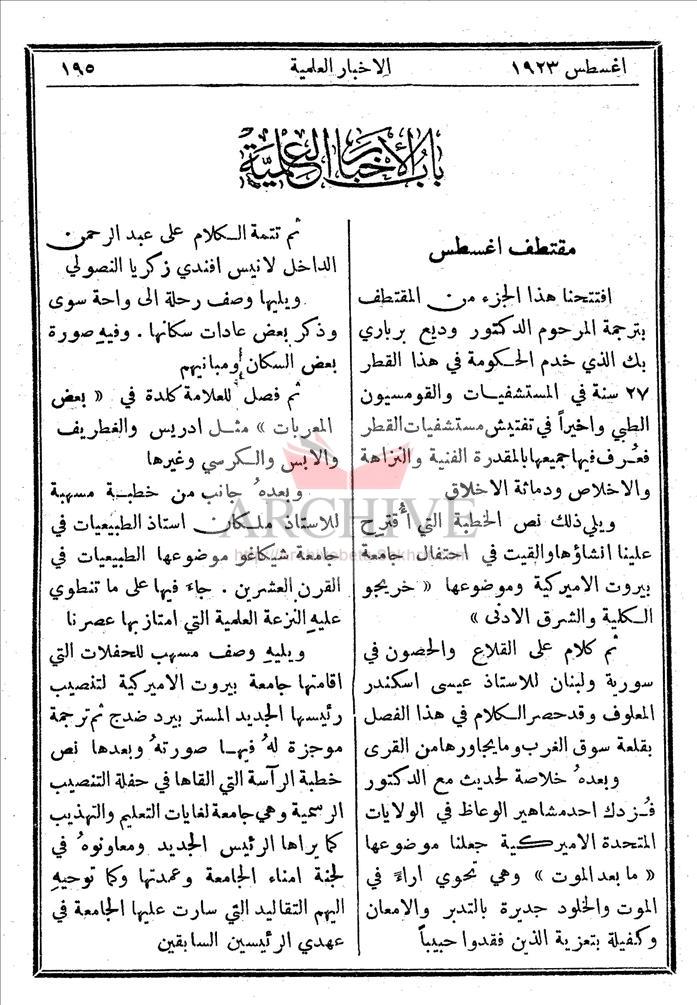 اغسطس ١٩٢٣
الاخبار العلمية
١٩٥
باب الأخبار العلمية
مقتطف اغسطس
افتتحنا هذا الجزء من المقتطف
بترجمة المرحوم الدكتور وديع برباري
بك الذي خدم الحكومة في هذا القطر
٢٧ سنة في المستشفيات والقومسيون
الطبي واخيراً في تفتيش مستشفيات القطر
فعُرف فيها جميعها بالمقدرة الفنية والنزاهة
والاخلاص ودماثة الاخلاق
ويلي ذلك نص الخطبة التي أُقترح
علينا انشاؤها والقيت في احتفال جامعة
بيروت الاميركية وموضوعها « خريجو
الكلية والشرق الادنى »
ثم كلام على القلاع والحصون في
سورية ولبنان للاستاذ عيسى اسكندر
المعلوف وقد حصر الكلام في هذا الفصل
بقلعة سوق الغرب وما يجاورها من القرى
وبعدهُ خلاصة لحديث مع الدكتور
فُزدك احد مشاهير الوعاظ في الولايات
المتحدة الاميركية جعلنا موضوعها
« ما بعد الموت » وهي تحوي اراءً في
الموت والخلود جديرة بالتدبر والامعان
وكفيلة بتعزية الذين فقدوا حبيباً
ثم تتمة الكلام على عبد الرحمن
الداخل لانيس افندي زكريا النصولي
ويليها وصف رحلة الى واحة سوى
وذكر بعض عادات سكانها . وفيهِ صورة
بعض السكان ومبانيهم
ثم فصل للعلامة كلدة في « بعض
المعربات » مثل ادريس والغطريف
والابس والكرسي وغيرها
وبعدهُ جانب من خطبة مسهبة
للاستاذ ملكان استاذ الطبيعيات في
جامعة شيكاغو موضوعها الطبيعيات في
القرن العشرين . جاء فيها على ما تنطوي
عليهِ النزعة العلمية التي امتاز بها عصرنا
ويليهِ وصف مسهب للحفلات التي
اقامتها جامعة بيروت الاميركية لتنصيب
رئيسها الجديد المستر بيرد ضدج ثم ترجمة
موجزة لهُ فيها صورتهُ وبعدها نص
خطبة الرآسة التي القاها في حفلة التنصيب
الرسمية وهي جامعة لغايات التعليم والتهذيب
كما يراها الرئيس الجديد ومعاونوهُ في
لجنة امناء الجامعة وعمدتها وكما توحيهِ
اليهم التقاليد التي سارت عليها الجامعة في
عهدي الرئيسين السابقين
ARCHIVE